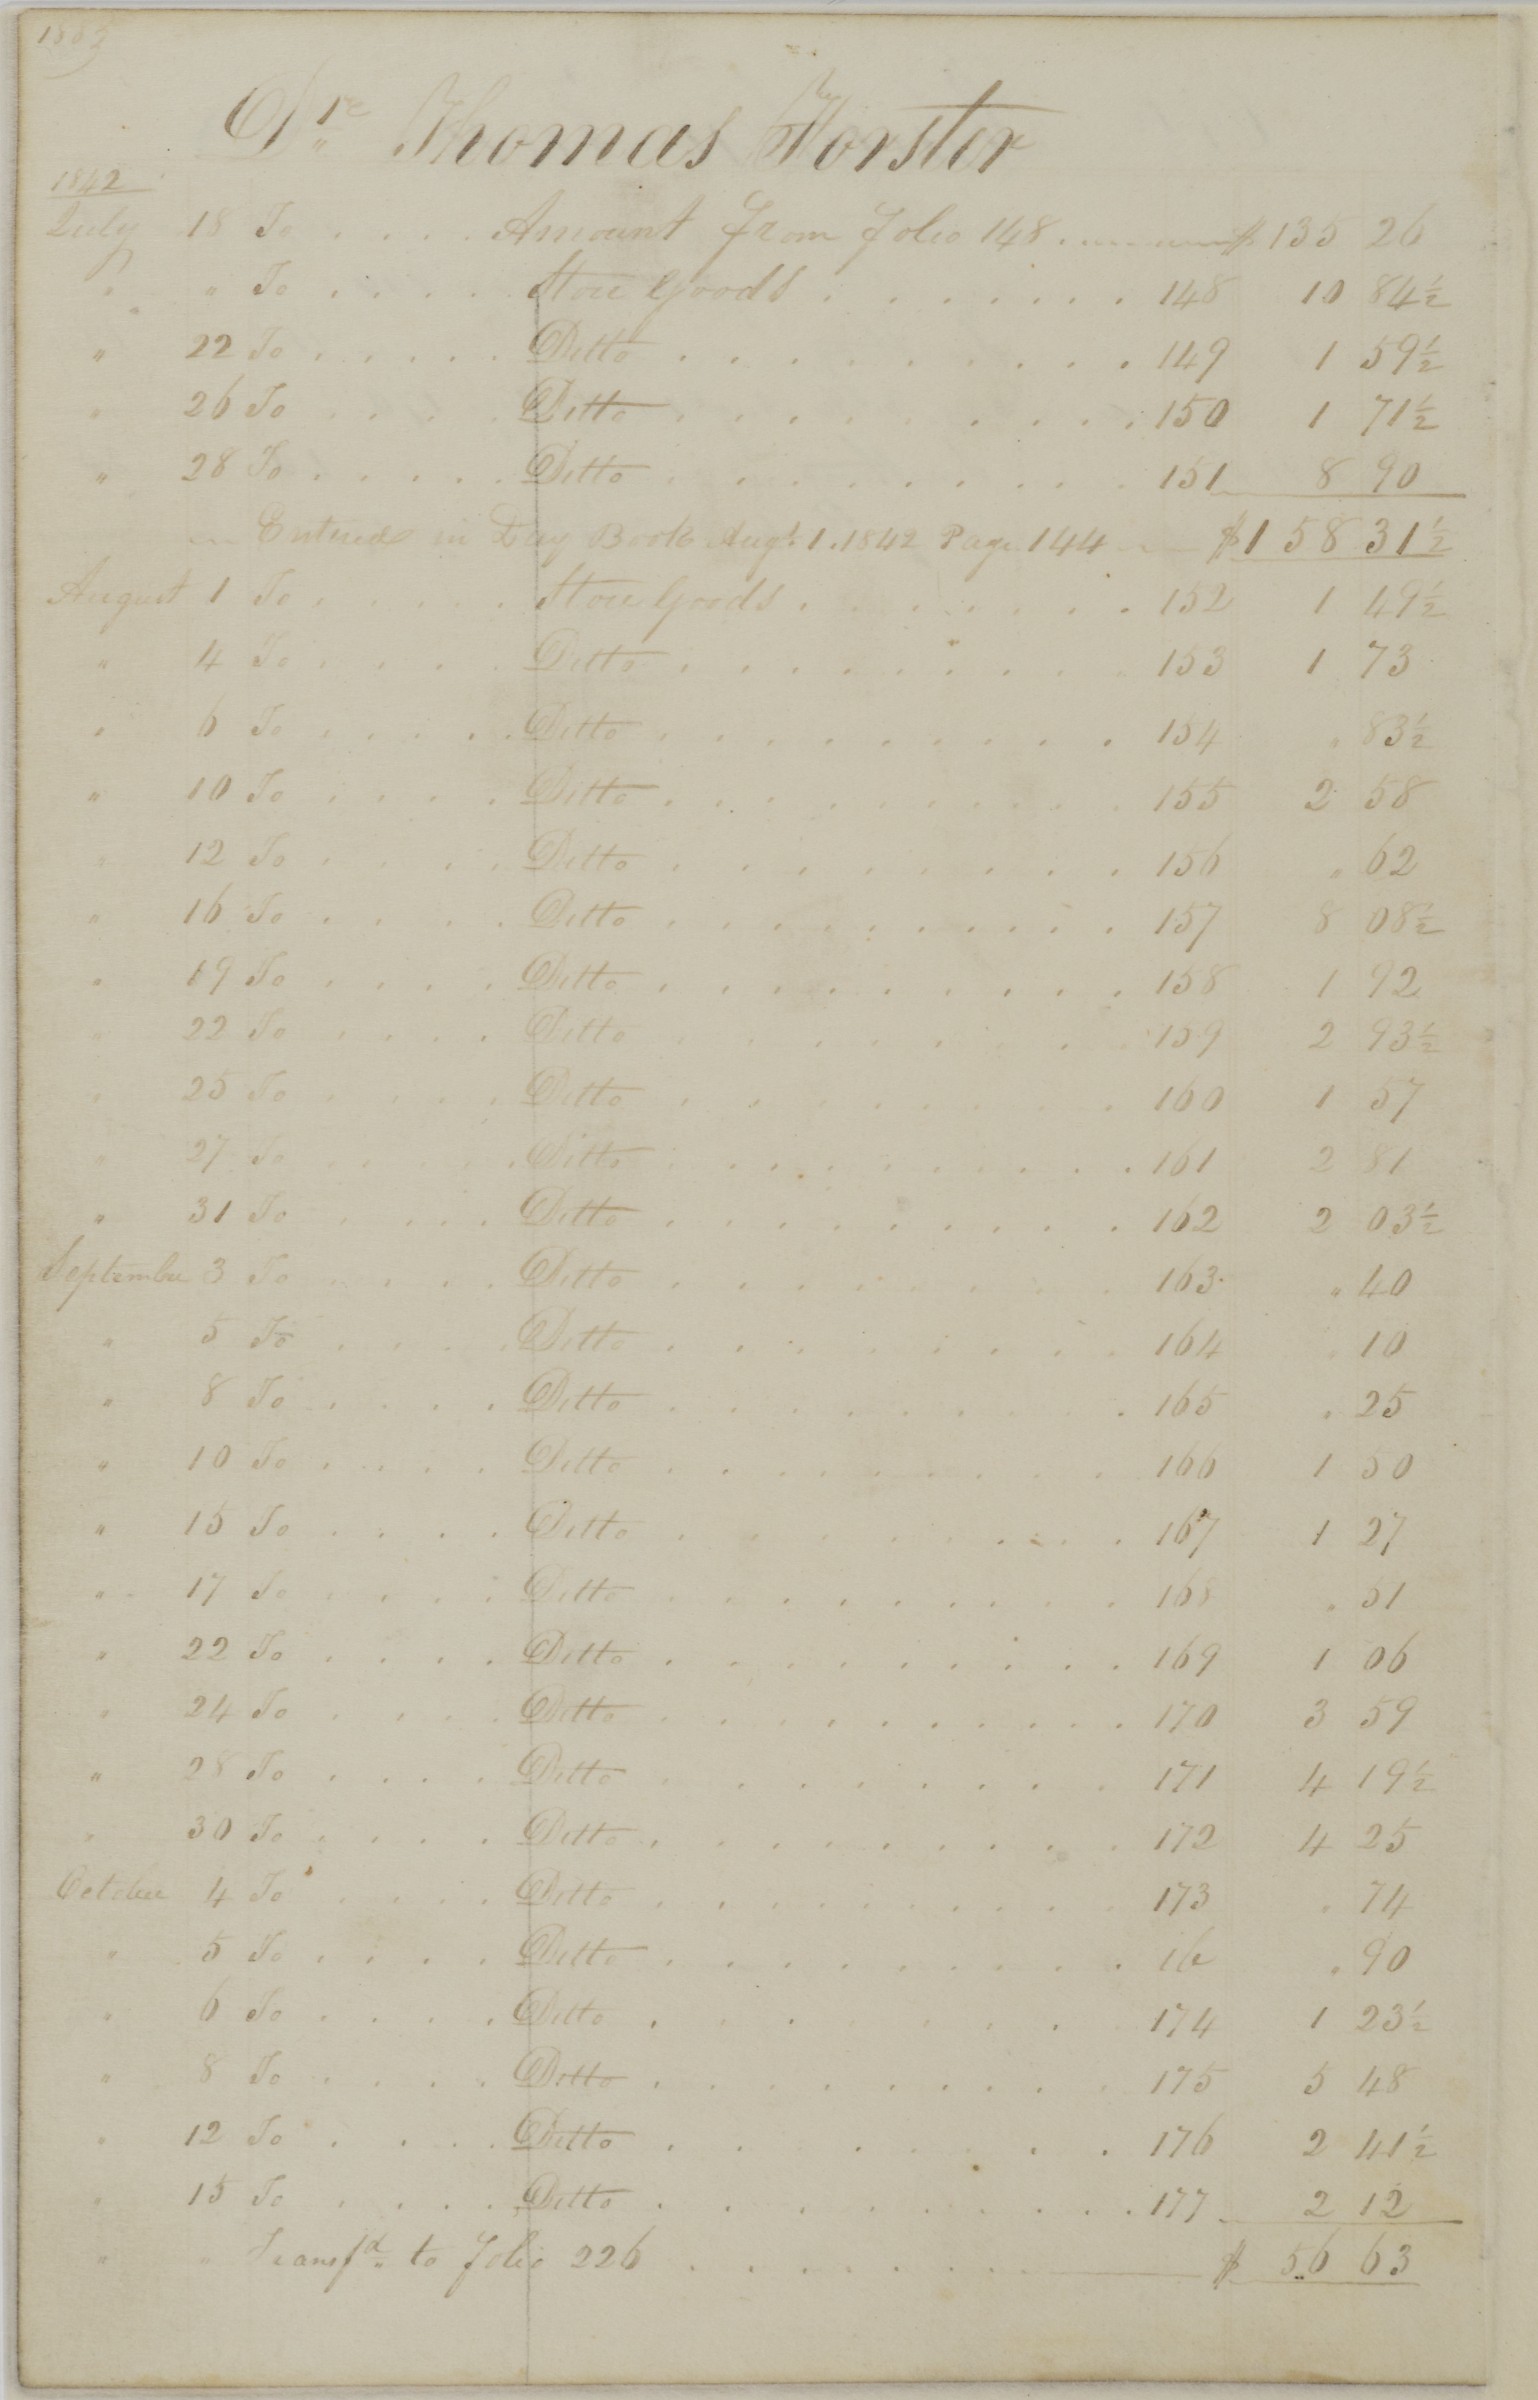 Dr. Thomas Forster
1842
July 18 To . . . . Amount from Folio 148 . $ 135 26
" " To . . . . . Store Goods . . . . . . . 148 10 84½
" 22 To . . . . . Ditto . . . . . . . . . 149 1 59½
" 26 To . . . . Ditto . . . . . . . . . 150 1 71½
" 28 To . . . . . Ditto . . . . . . . . 151 8 90
Entered in Day Book Augt. 1. 1842 Page 144 $158 31½
August 1 To . . . . . Store Goods . . . . . . . 152 1 49½
" 4 To . . . . Ditto . . . . . . . . . 153 1 73
" 6 To . . . . . Ditto . . . . . . . . . 154 " 83½
" 10 To . . . . Ditto . . . . . . . . . . 155 2 58
" 12 To . . . . Ditto . . . . . . . . . 156 " 62
" 16 To . . . . Ditto . . . . . . . . . . 157 8 08½
" 19 To . . . . Ditto . . . . . . . . . 158 1 92
" 22 To . . . . Ditto . . . . . . . . 159 2 93½
" 25 To . . . . Ditto . . . . . . . . . 160 1 57
" 27 To . . . . . Ditto . . . . . . . . . 161 2 81
" 31 To . . . . Ditto . . . . . . . . . 162 2 03½
September 3 To . . . . Ditto . . . . . . . . . 163 " 40
" 5 To . . . . Ditto . . . . . . . . . 164 " 10
" 8 To . . . . Ditto . . . . . . . . . 165 " 25
" 10 To . . . . Ditto . . . . . . . . . 166 1 50
" 15 To . . . . Ditto . . . . . . . . . 167 1 27
" 17 To . . . . Ditto . . . . . . . . . 168 " 51
" 22 To . . . . Ditto . . . . . . . . . 169 1 06
" 24 To . . . . Ditto . . . . . . . . . 170 3 59
" 28 To . . . . Ditto . . . . . . . . . 171 4 19½
" 30 To . . . . Ditto . . . . . . . . . 172 4 25
October 4 To . . . . Ditto . . . . . . . . . 173 " 74
" 5 To . . . . Ditto . . . . . . . . . " 90
" 6 To . . . . Ditto . . . . . . . . 174 1 23½
" 8 To . . . . Ditto . . . . . . . . . 175 5 48
" 12 To . . . . Ditto . . . . . . . . . 176 2 41½
" 15 To . . . . Ditto . . . . . . . . . 177 2 12
" " Transfd. to Folio 226 . . . . . . . $ 56 63